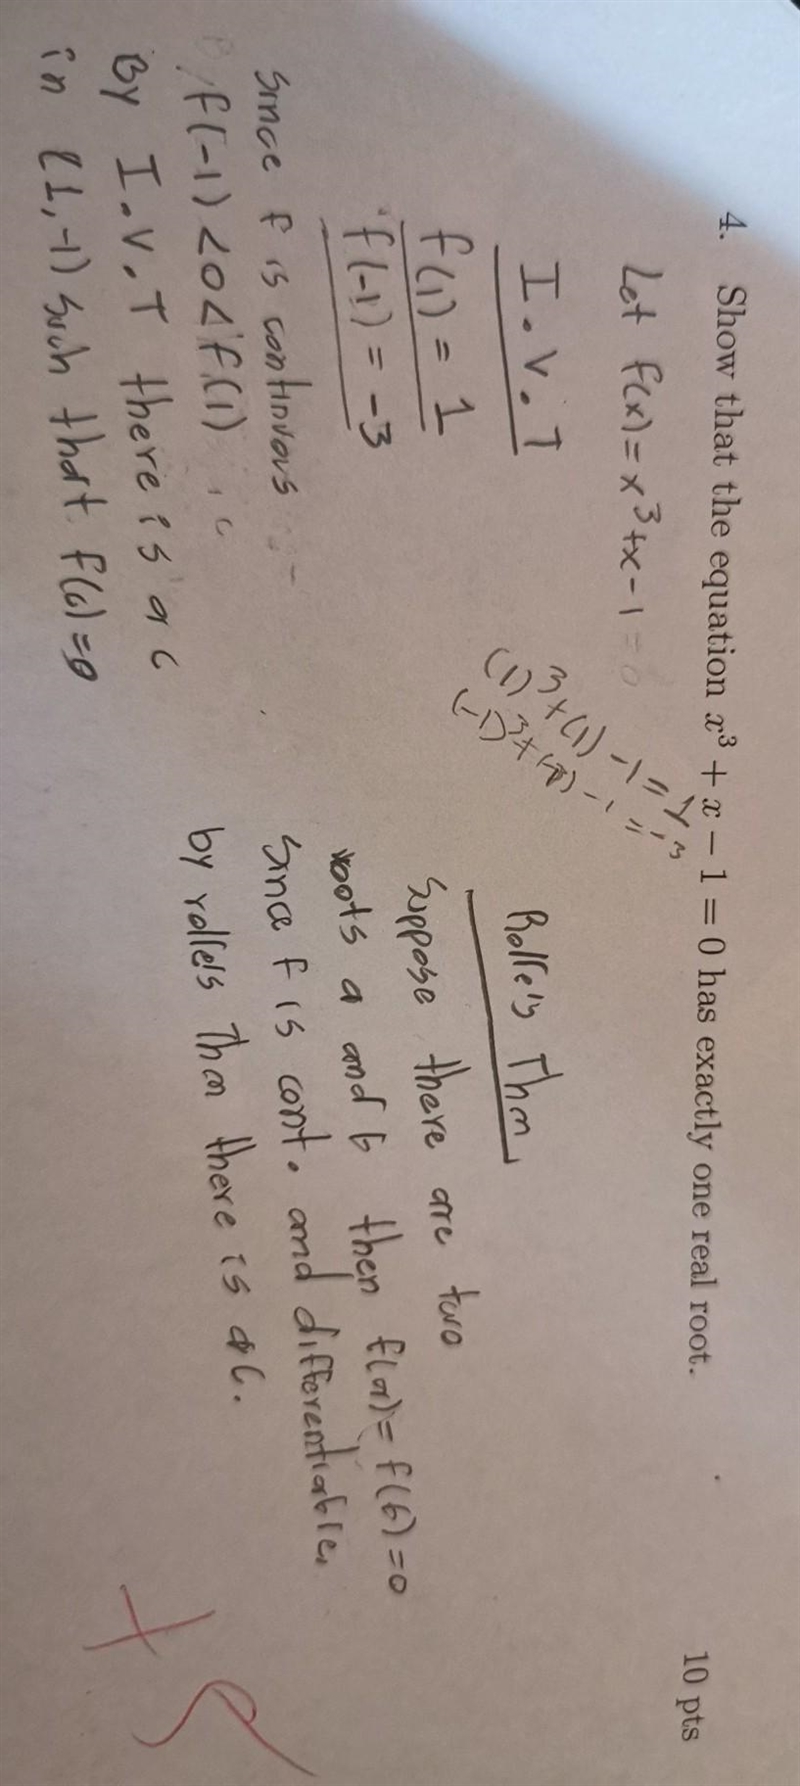 4. Show that the equation x³ + x − 1 = 0 has exactly one real root. 10 pts
Let f(x) = x³+x-1 = 0
I.V.T
f(1) = 1
f(-1) = -3
since f is continuous
f(-1) <0< f(1)
By I.V.T there is a c
in (1,-1) such that f(c)=0
(1)³+(1)-1=
Rolle's Thm
Suppose there are two
roots a and b then f(a)= f(b)=0
Since f is cont. and differentiable.
by rolle's Thm there is a c.
+5